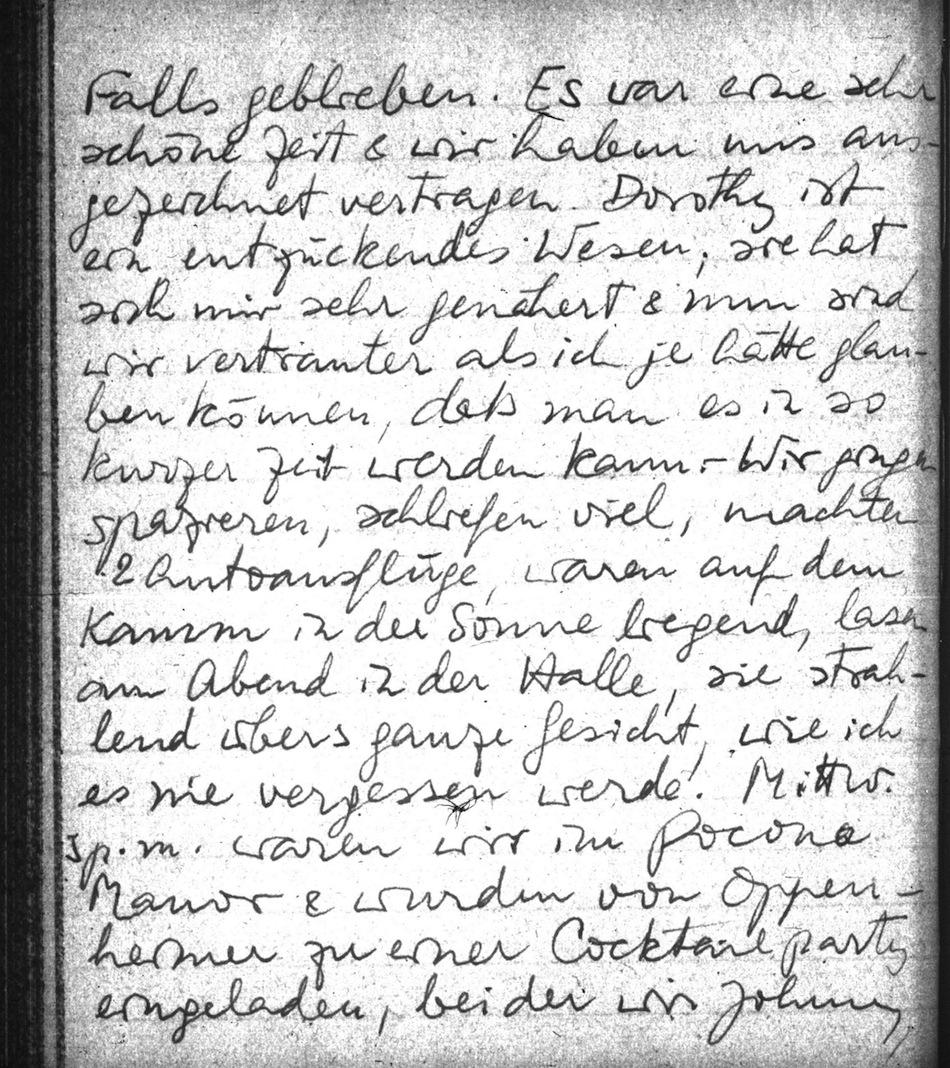 Falls geblieben. Es war eine sehr
schöne Zeit & wir haben uns aus-
gezeichnet vertragen. Dorothy ist
ein entzückendes Wesen, sie hat
sich mir sehr genähert & nun sind
wir vertrauter als ich je hätte glau-
ben können, daß man es in so
kurzer Zeit werden kann. – Wir gingen
spazieren, schliefen viel, machten
2 Autoausflüge, waren auf dem
Kamm in der Sonne liegend, lasen
am Abend in der Halle, sie strah-
lend übers ganze Gesicht, wie ich
es nie vergessen werde. Mittw.
5 p.m. waren wir im Pocono
Manor & wurden von Oppen-
heimer zu einer Cocktail party
eingeladen, bei der wir Johnny,